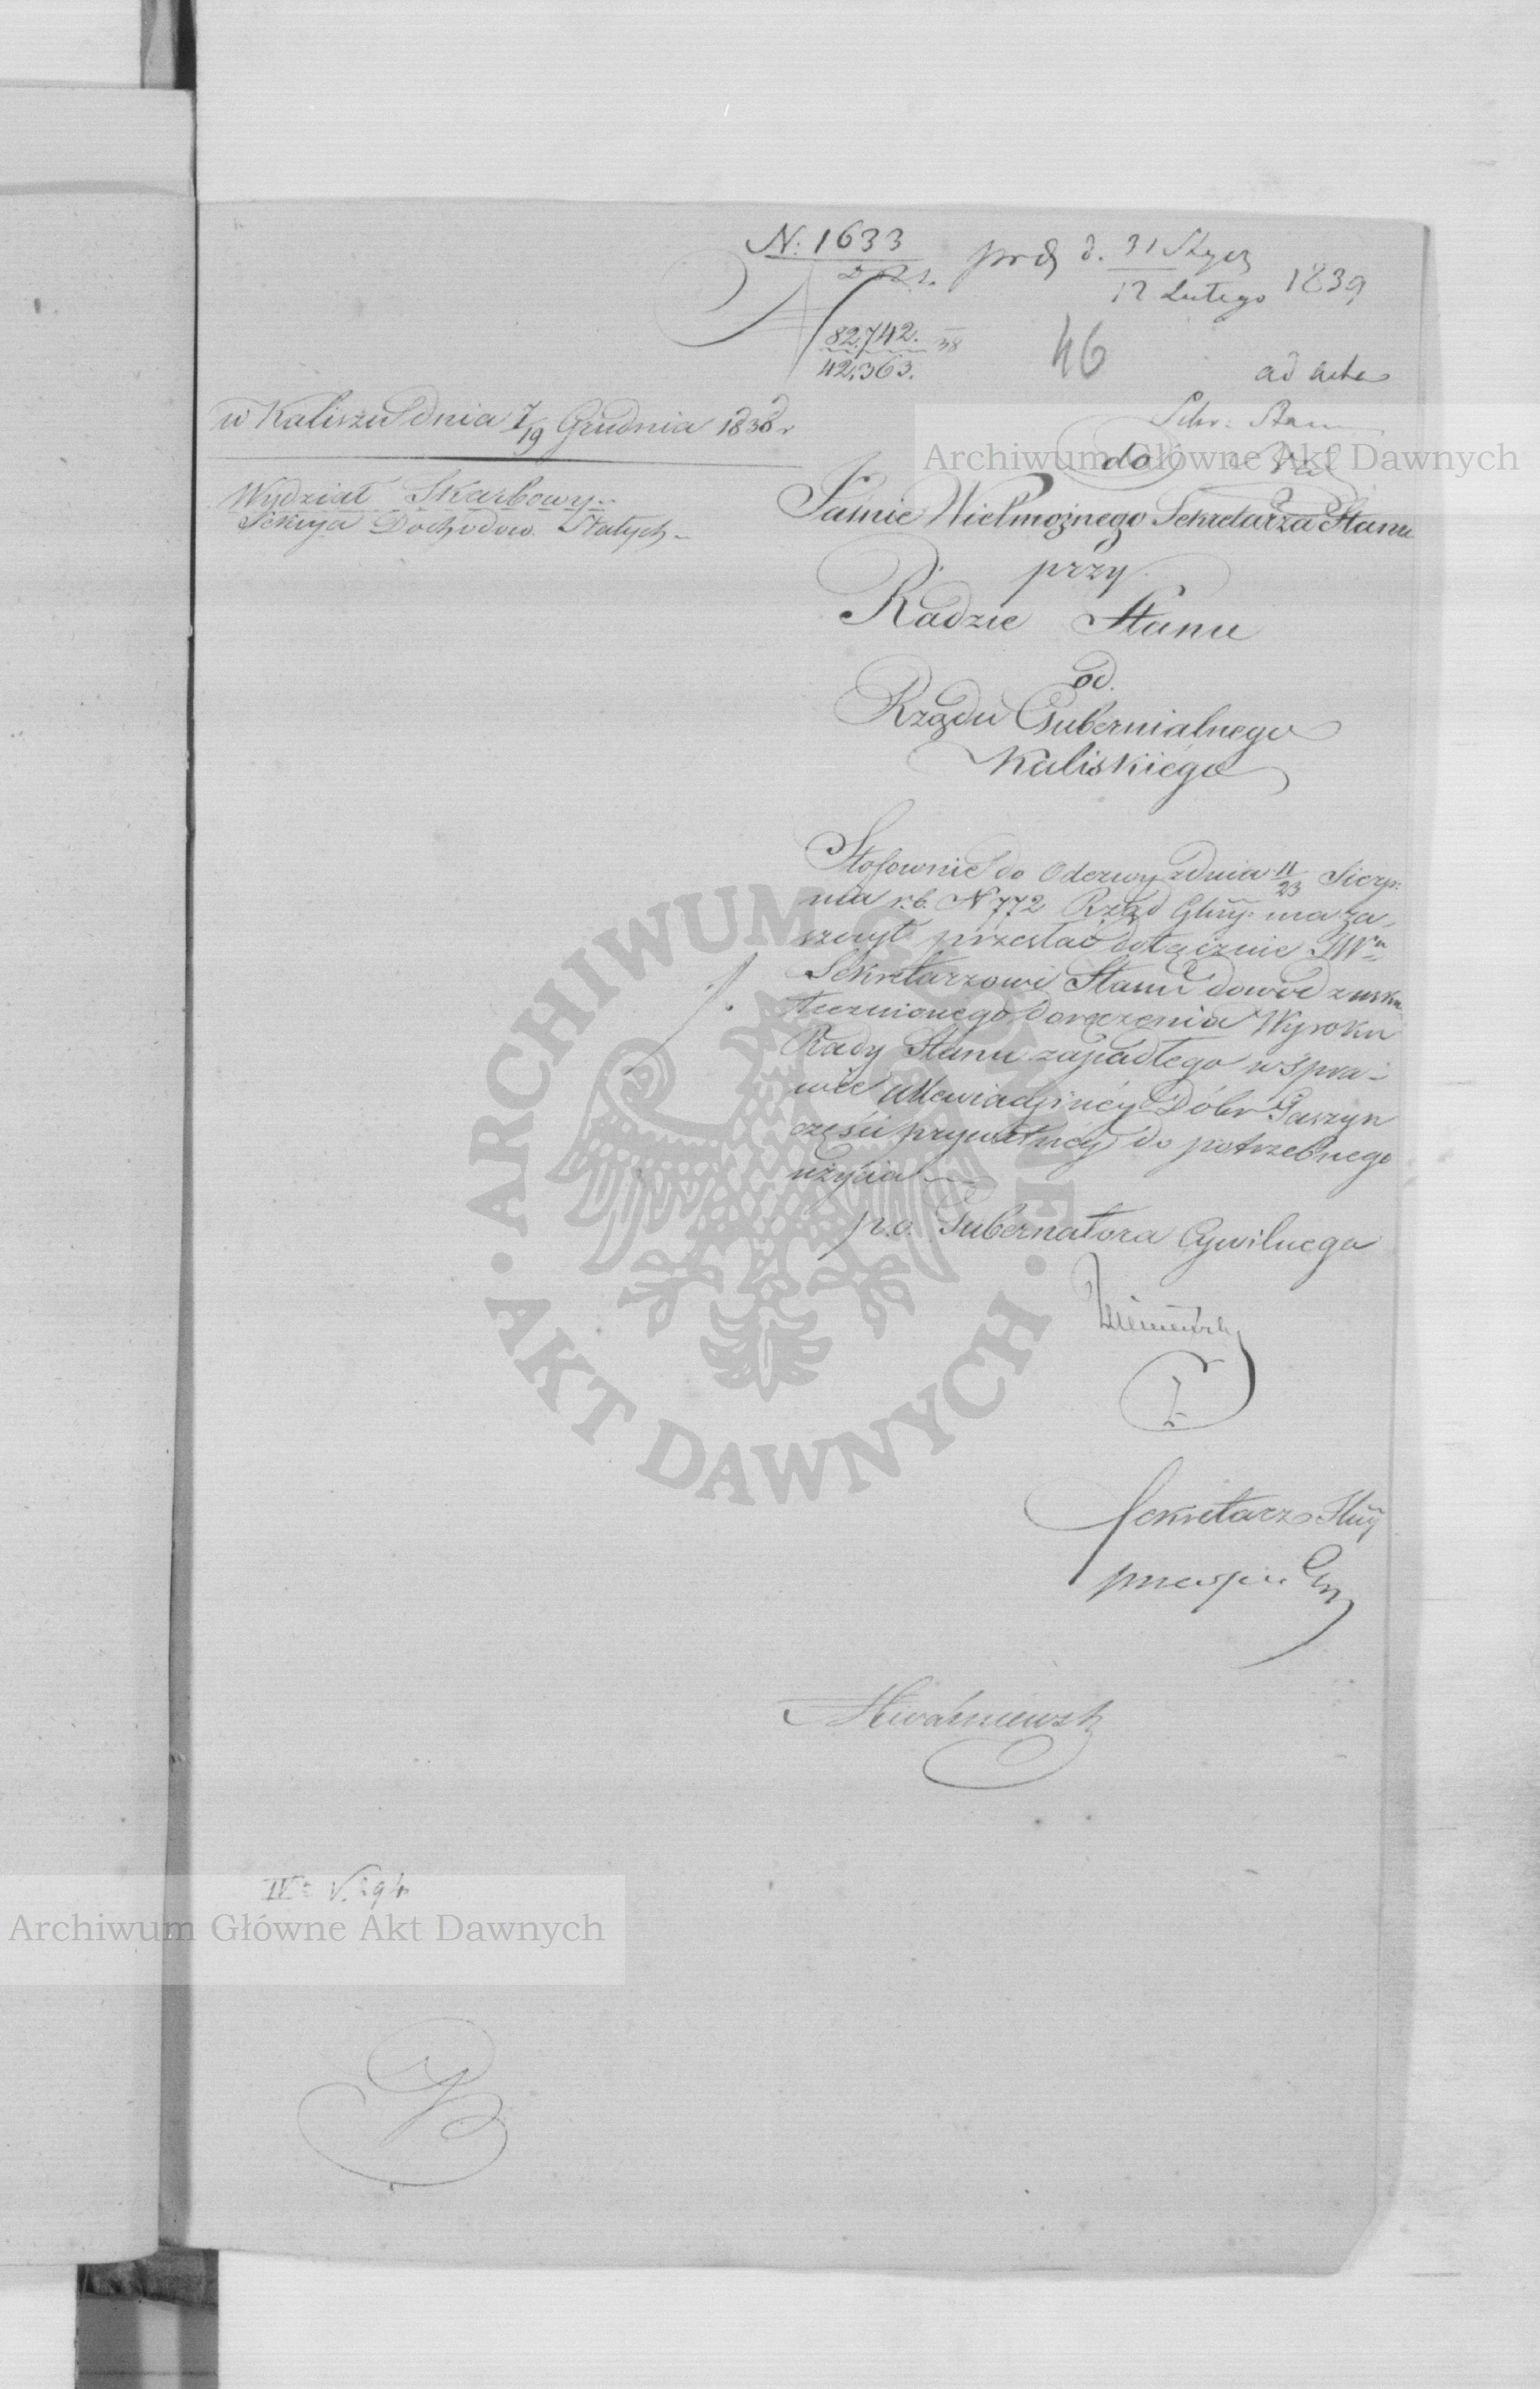 N. 1633
prd d. 31 Stycz
12 Lutego 1839
82,742. 38
42,363.
46
ad acta
w Kaliszu dnia 7/19 Grudnia 1838 r
Wydział Skarbowy
Sekcya Dochodów Stałych
do
Jaśnie Wielmożnego Sekretarza Stanu
przy
Radzie Stanu
od
Rządu Gubernialnego
Kaliskiego
Stosownie do Odezwy z dnia 11/23 Sierp:
nia r.b. N 772 Rząd Gbny: ma za-
szczyt przesłać dołącznie JWu
Sekretarzowi Stanu dowód zusku-
tecznionego doręczenia Wyroku
Rady Stanu zapadłego w spra-
wie dóbr Gaszyn
części prywatney do potrzebnego
użycia
p.o. Gubernatora Cywilnego
Sekretarz
Archiwum Główne Akt Dawnych
Archiwum Główne Akt Dawnych
ARCHIWUM GŁÓWNE
AKT DAWNYCH